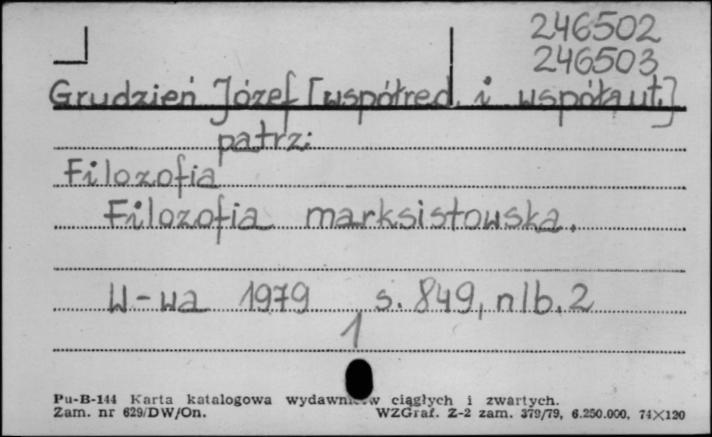 246502
246503
Grudzień Józef [współred. i współaut.]
patrz:
Filozofia
Filozofia marksistowska.
W-wa 1979 s. 849, nlb. 2
1
Pu-B-144 Karta katalogowa ciągłych i zwartych.
Zam. nr 629/DW/On. WZGraf. Z-2 zam. 379/79, 6.250.000, 74×120